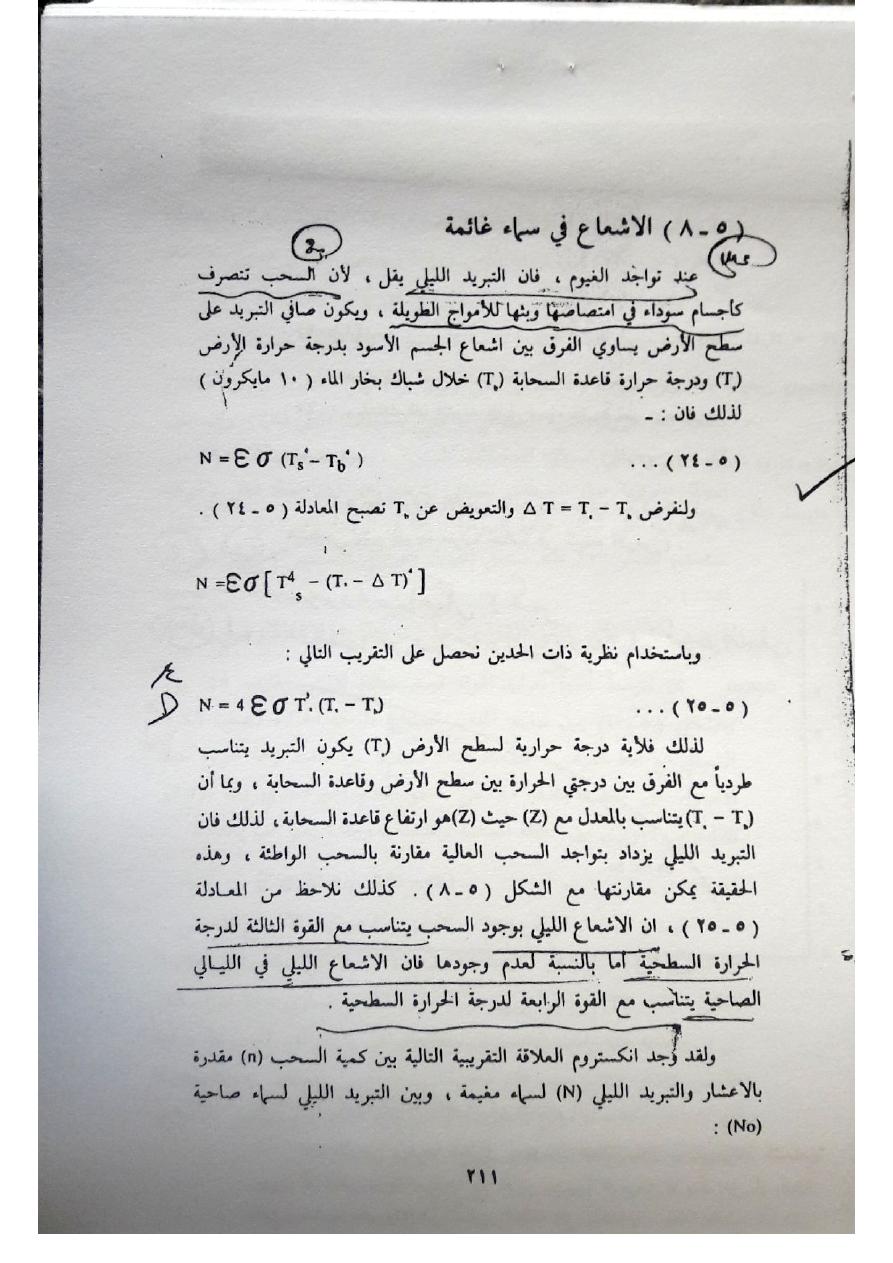 ( ٥ ـ ٨ ) الاشعاع في سماء غائمة
عند تواجد الغيوم ، فان التبريد الليلي يقل ، لأن السحب تتصرف
كأجسام سوداء في امتصاصها وبثها للأمواج الطويلة ، ويكون صافي التبريد على
سطح الأرض يساوي الفرق بين اشعاع الجسم الأسود بدرجة حرارة الأرض
(Tₛ) ودرجة حرارة قاعدة السحابة (T_b) خلال شباك بخار الماء ( ١٠ مايكرون )
لذلك فان : ـ
N = Ɛ σ (Tₛ⁴ − T_b⁴ ) ( ٥ ـ ٢٤ ) ...
ولنفرض Δ T = Tₛ − T_b والتعويض عن T_b تصبح المعادلة ( ٥ ـ ٢٤ ) .
N = Ɛ σ [ T⁴ₛ − (Tₛ − Δ T)⁴ ]
وباستخدام نظرية ذات الحدين نحصل على التقريب التالي :
D N = 4 Ɛ σ T³ₛ (Tₛ − T_b) ( ٥ ـ ٢٥ ) ...
لذلك فلأية درجة حرارية لسطح الأرض (Tₛ) يكون التبريد يتناسب
طردياً مع الفرق بين درجتي الحرارة بين سطح الأرض وقاعدة السحابة ، وبما أن
(Tₛ − T_b) يتناسب بالمعدل مع (Z) حيث (Z) هو ارتفاع قاعدة السحابة ، لذلك فان
التبريد الليلي يزداد بتواجد السحب العالية مقارنة بالسحب الواطئة ، وهذه
الحقيقة يمكن مقارنتها مع الشكل ( ٥ ـ ٨ ) . كذلك نلاحظ من المعادلة
( ٥ ـ ٢٥ ) ، ان الاشعاع الليلي بوجود السحب يتناسب مع القوة الثالثة لدرجة
الحرارة السطحية أما بالنسبة لعدم وجودها فان الاشعاع الليلي في الليالي
الصاحية يتناسب مع القوة الرابعة لدرجة الحرارة السطحية .
ولقد وجد انكستروم العلاقة التقريبية التالية بين كمية السحب (n) مقدرة
بالاعشار والتبريد الليلي (N) لسماء مغيمة ، وبين التبريد الليلي لسماء صاحية
(No) :
٢١١